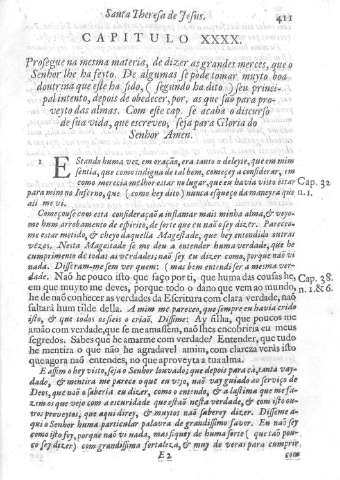 Santa Theresa de Jesus. 411
CAPITULO XXXX.
Prosegue na mesma materia, de dizer as grandes merces, que o
Senhor lhe ha feyto. De algumas se pòde tomar muyto boa
doutrina que este ha sido, ( segundo ha dito ) seu princi-
pal intento, depois de obedecer, pòr, as que saõ para pro-
veyto das almas. Com este cap. se acaba o discurso
de sua vida, que escreveo, seja para Gloria do
Senhor Amen.
1 EStando huma vez, em oração, era tanto o deleyte, que em mim
sentia, que como indigna de tal bem, começey a considerar, em
como merecia melhor estar no lugar, que eu havia visto estar Cap. 32
para mim no Inferno, que ( como hey dito ) nunca esqueço da maneyra que n. 1.
ali me vi.
Começouse com esta consideraçaõ a inflamar mais minha alma, & veyo-
me hum arrobamento de espirito, de sorte que eu naõ sey dizer. Pareceo-
me estar metido, & cheyo daquella Magestade, que hey entendido outras
vezes. Nesta Magestade se me deu a entender huma verdade, que he
cumprimento de todas as verdades; naõ sey eu dizer como, porque naõ vi
nada. Disseram-me sem ver quem: ( mas bem entendi ser a mesma ver-
dade. Naõ he pouco isto que faço por ti, que huma das cousas he, Cap. 28.
em que muyto me deves, porque todo o dano que vem ao mundo, n. 1. & 6.
he de naõ conhecer as verdades da Escritura com clara verdade, naõ
faltará hum tilde della. A mim me pareceo, que sempre eu havia crido
isto, & que todos os fieis o criaõ. Disseme: Ay filha, que poucos me
amão com verdade, que se me amassem, naõ lhes encobriria eu meus
segredos. Sabes que he amarme com verdade? Entender, que tudo
he mentira o que não he agradavel amim, com clareza verás isto
que agora naõ entendes, no que aproveyta a tua alma.
E assim o hey visto, seja o Senhor louvado; que depois para cà, tanta vay-
dade, & mentira me parece o que eu vejo, naõ vay guiado ao serviço de
Deos, que naõ o saberia eu dizer, como o entendo, & a lastima que me fa-
zem os que vejo com a escuridade que estaõ nesta verdade, & com isto ou-
tros proveytos; que aqui direy, & muytos naõ saberey dizer. Disseme a-
qui o Senhor huma particular palavra de grandissimo favor. Eu naõ sey
como isto foy, porque naõ vi nada, mas fiquey de huma sorte ( que taõ pou-
co sey dizer ) com grandissima fortaleza, & muy de veras para cumprir
E 2 com